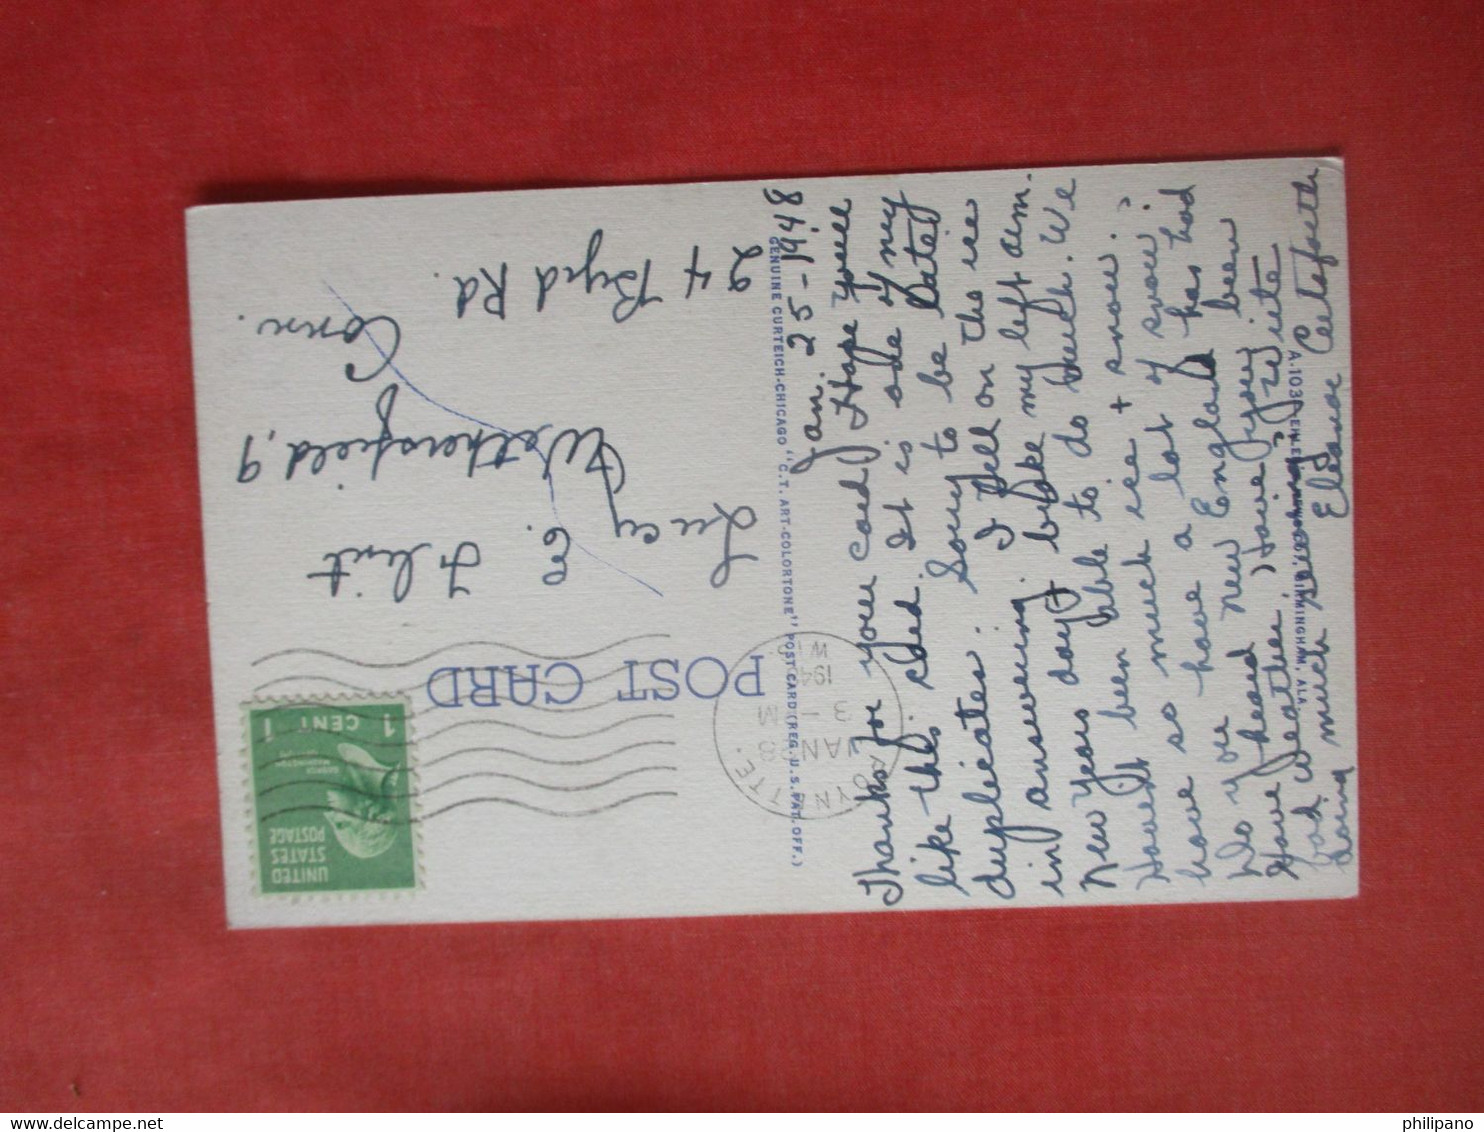 Jan. 25-1948
Thanks for your card. Hope you'll
like this card. It is one of my
duplicates. Sorry to be late
in answering. I fell on the ice
New Years day & broke my left arm.
Haven't been able to do much. We
have so much ice & snow.
Do you have a lot of snow?
heard New England has had
Have
bad weather. Have you been
doing much
Eleanor
A.103
BIRMINGHAM, ALA
GENUINE CURTEICH-CHICAGO "C.T. ART-COLORTONE" POST CARD (REG. U.S. PAT. OFF.)
POST CARD
POYNETTE.
JAN 28
3 - M
194
WIS.
UNITED
STATES
POSTAGE
GEORGE
WASHINGTON
1 CENT 1
Lucy E. Flint
24 Byrd Rd.
Wethersfield, 9
Conn.
philipano